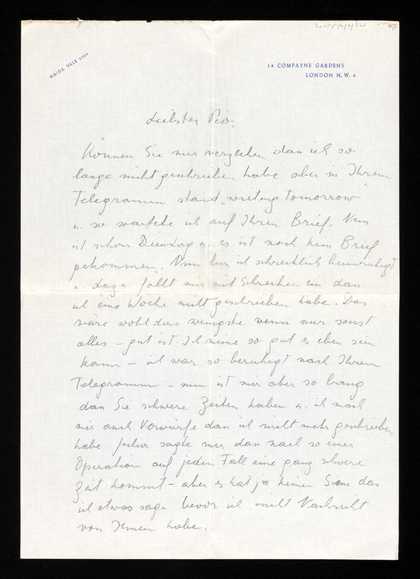 MAIDA VALE
14 COMPAYNE GARDENS
LONDON N.W.6
Liebster Pio.
Können Sie mir verzeihen dass ich so
lange nicht geschrieben habe aber in Ihrem
Telegramm stand „writing tomorrow"
u. so wartete ich auf Ihren Brief. Nun
ist schon Dienstag u. es ist noch kein Brief
gekommen. Nun bin ich schrecklich beunruhigt
u. dazu fällt mir mit Schrecken ein dass
ich eine Woche nicht geschrieben habe. Das
wäre wohl das wenigste wenn nur sonst
alles - gut ist. Ich meine so gut es eben sein
kann - ich war so beruhigt nach Ihrem
Telegramm - nun ist mir aber so bang
dass Sie schwere Zeiten haben u. ich mach
mir auch Vorwürfe dass ich nicht mehr geschrieben
habe. sagte mir dass nach so einer
Operation auf jeden Fall eine ganz schwere
Zeit kommt - aber es hat ja keinen Sinn dass
ich etwas sage bevor ich nicht Nachricht
von Ihnen habe.